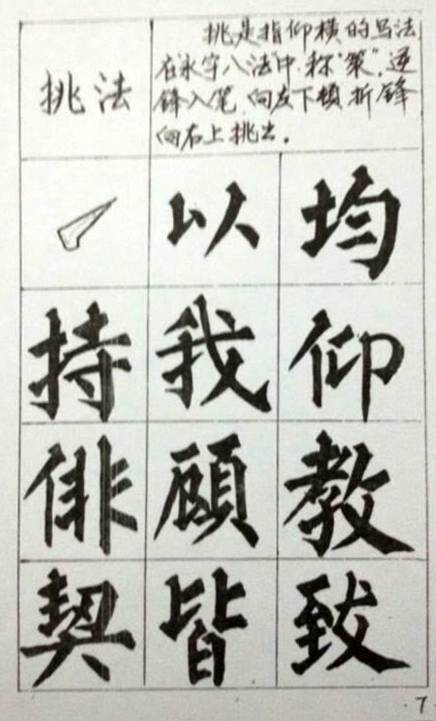 挑法
挑是指仰横的写法
在“永字八法”中,称“策”。逆
锋入笔,向左下顿,折锋
向右上挑出。
以 均
持 我 仰
俳 顾 教
契 皆 致
7